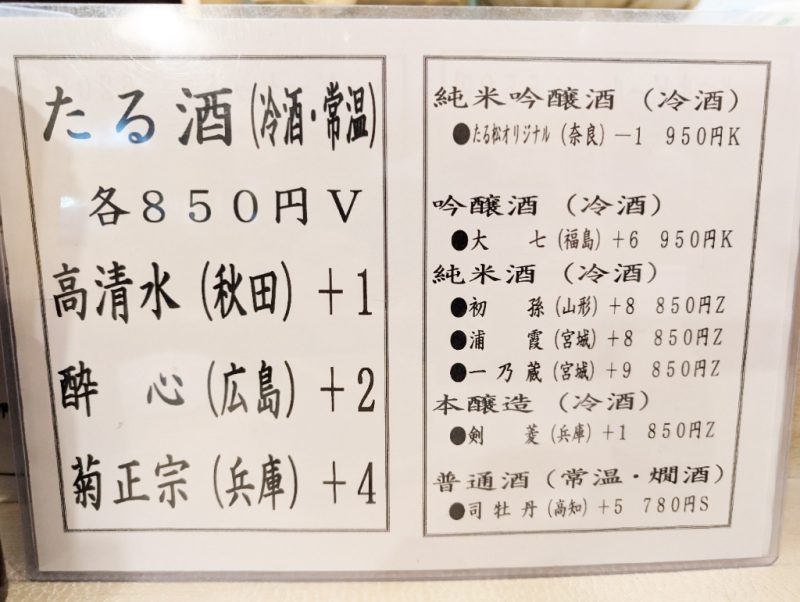 たる酒(冷酒・常温)
各850円V
高清水(秋田)+1
酔 心(広島)+2
菊正宗(兵庫)+4
純米吟醸酒(冷酒)
●たる松オリジナル(奈良)-1 950円K
吟醸酒(冷酒)
●大 七(福島)+6 950円K
純米酒(冷酒)
●初 孫(山形)+8 850円Z
●浦 霞(宮城)+8 850円Z
●一乃蔵(宮城)+9 850円Z
本醸造(冷酒)
●剣 菱(兵庫)+1 850円Z
普通酒(常温・燗酒)
●司牡丹(高知)+5 780円S